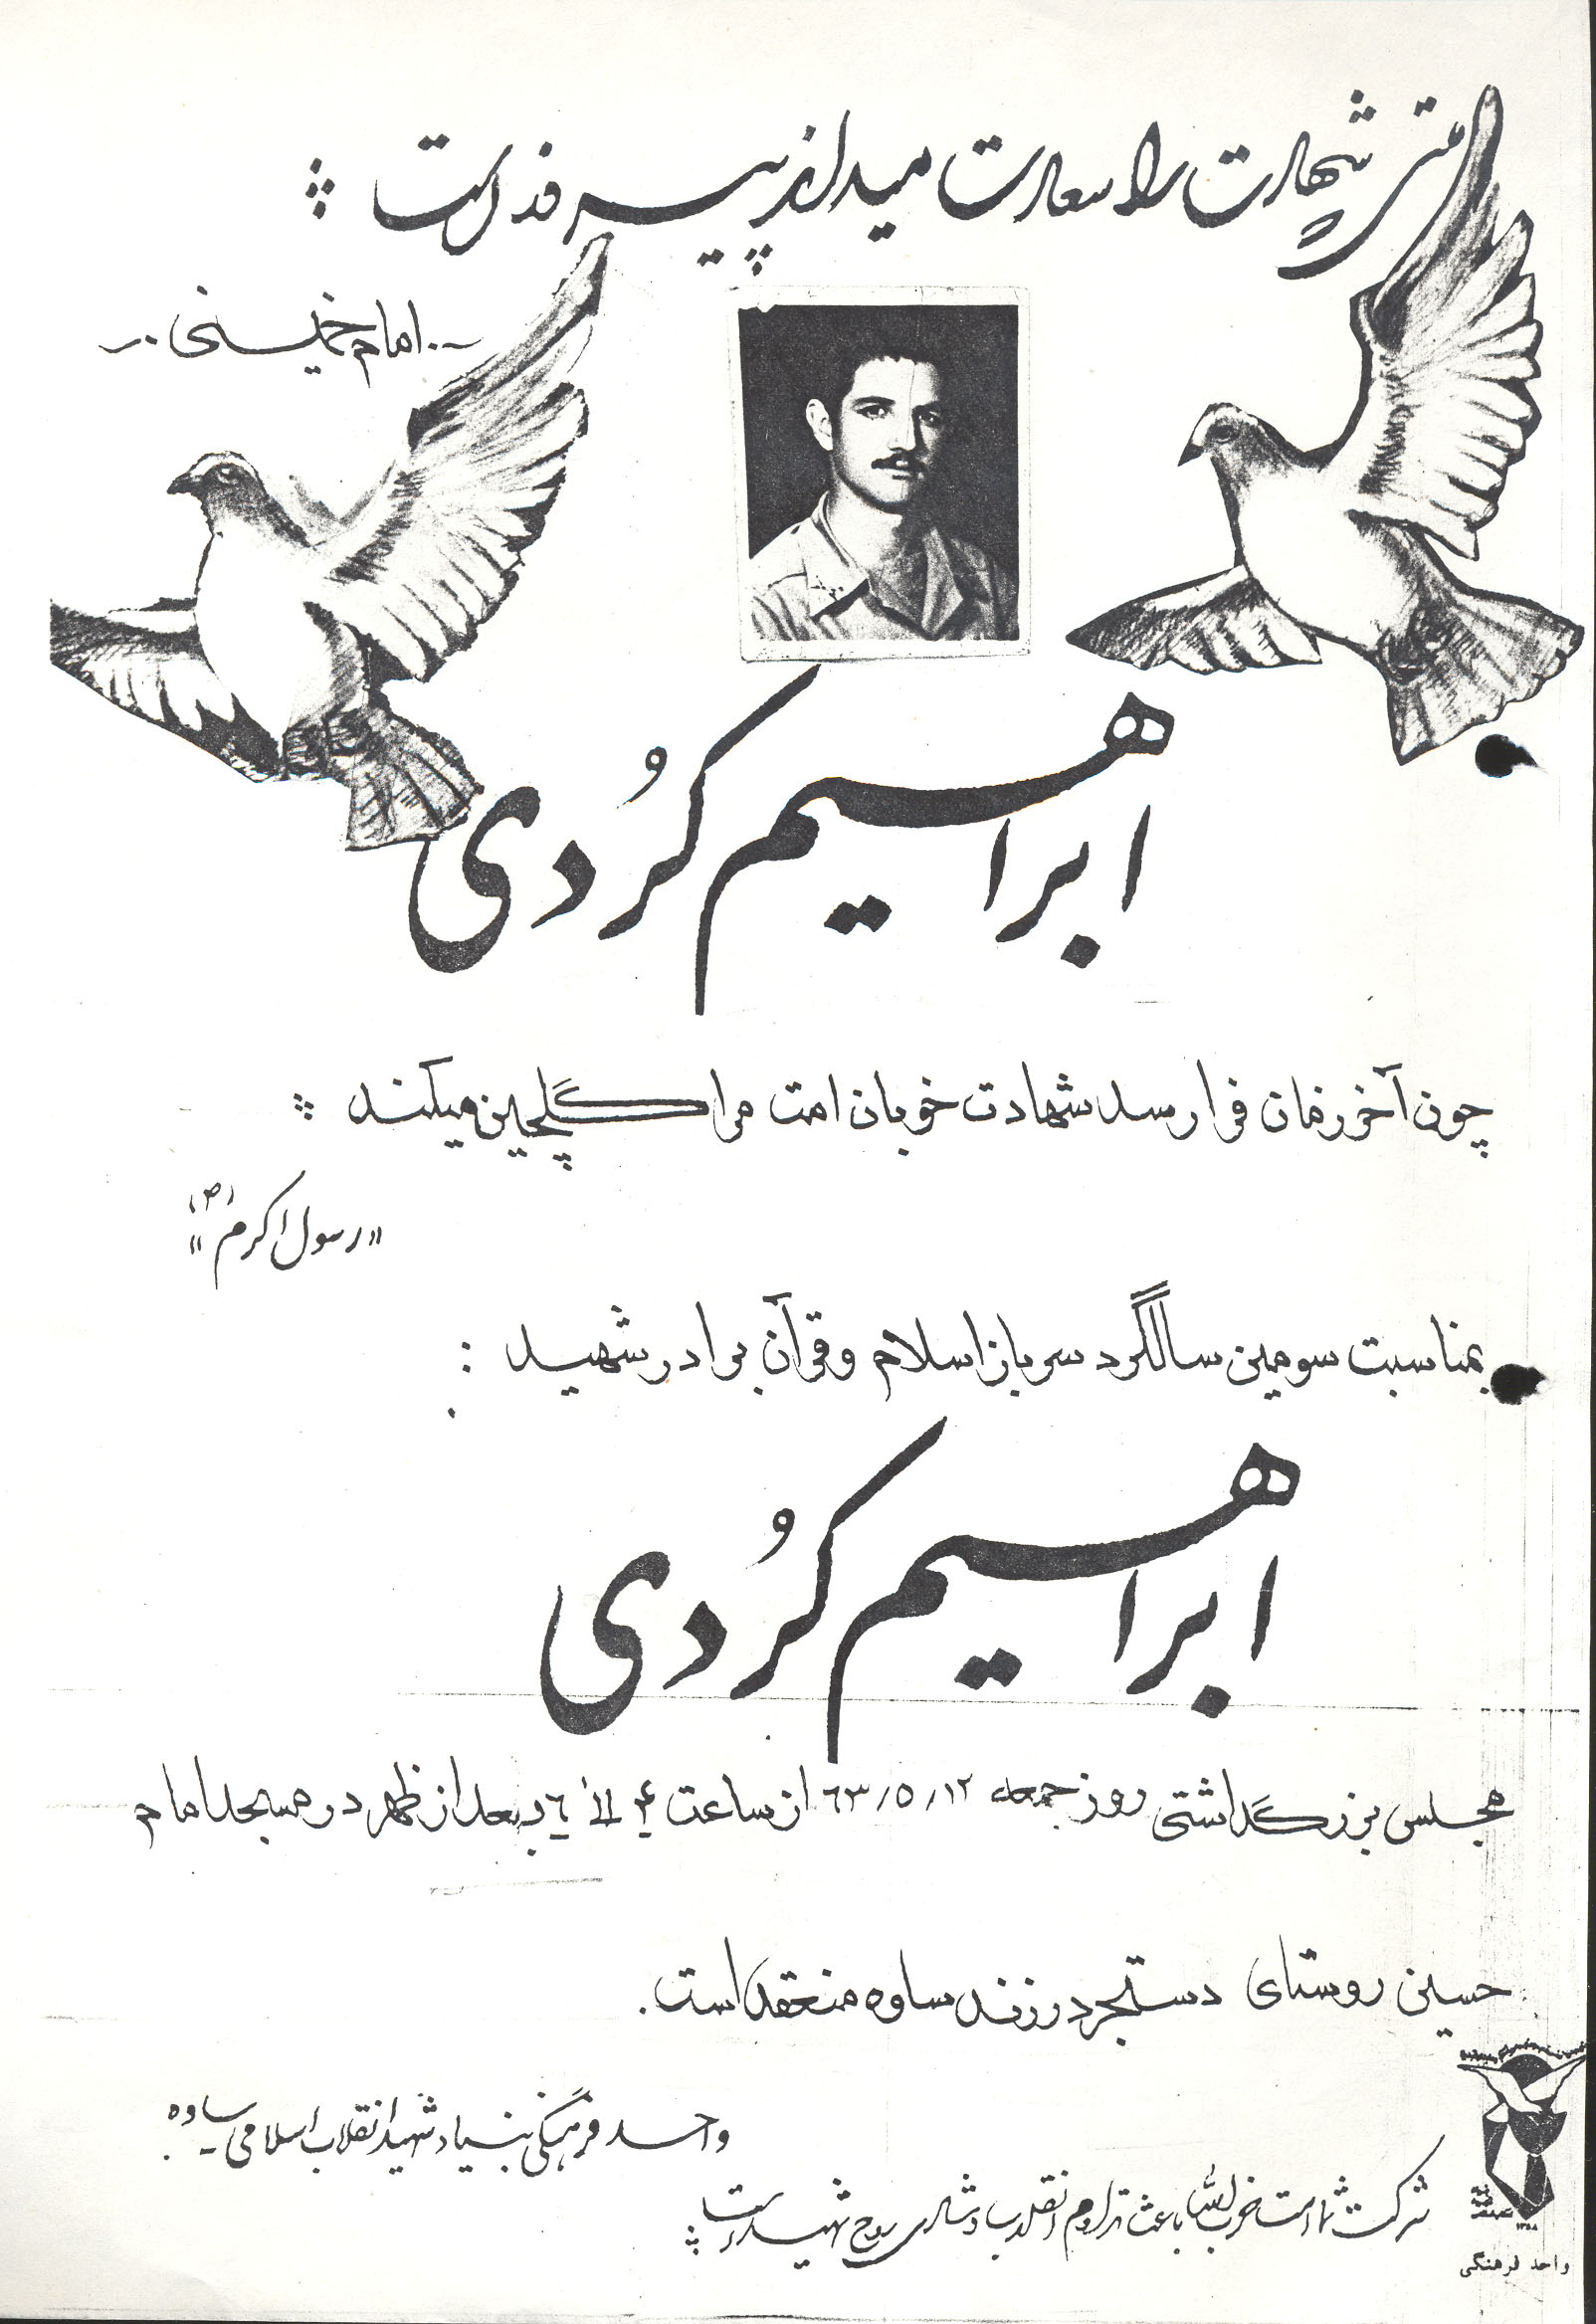 ملتی که شهادت را سعادت میداند پیروز است
- امام خمینی -
ابراهیم کُردی
چون آخر زمان فرا رسد شهادت خوبان امت مرا گلچین میکند
"رسول اکرم (ص)"
بمناسبت سومین سالگرد سرباز اسلام و قرآن برادر شهید :
ابراهیم کُردی
مجلس بزرگداشتی روز جمعه ۶۳/۵/۱۲ از ساعت ۴ الی ۶ بعد از ظهر در مسجد امام
حسین روستای دستجرد زرند ساوه منعقد است.
واحد فرهنگی بنیاد شهید انقلاب اسلامی - ساوه
شرکت شما امت حزب الله باعث تداوم انقلاب و شادی روح شهید است
واحد فرهنگی